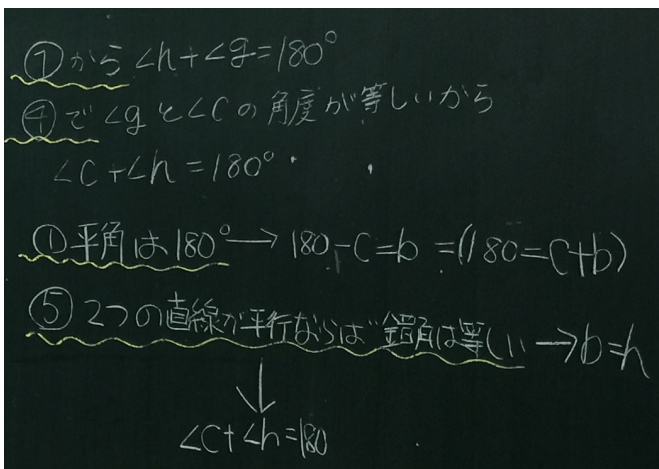 ①から∠h+∠g=180°
④で∠gと∠cの角度が等しいから
∠c+∠h=180°
①平角は180°→180-c=b =(180=c+b)
⑤2つの直線が平行ならば錯角は等しい→b=h
↓
∠c+∠h=180